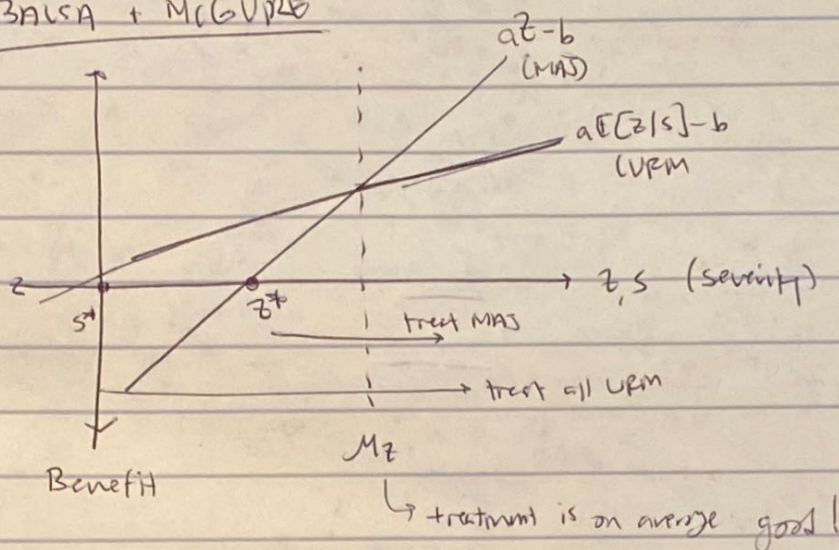 BALSA + MCGUIRE
az-b
(MAJ)
aE[z|s]-b
(URM
z
z,s (severity)
s*
z*
treat MAJ
treat all URM
Mz
Benefit
↳ treatment is on average good!